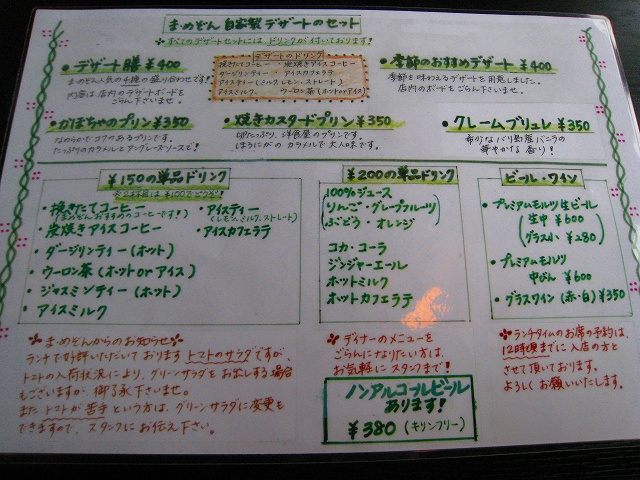 まめぞん 自家製デザートのセット
＊すべてのデザートセットには、ドリンクが付いております!
・デザート膳 ¥400
まめぞん人気の4種の盛り合わせです!
内容は店内のデザートボードを
ごらん下さいませ。
デザートのドリンク
・挽きたてコーヒー ・炭焼きアイスコーヒー
・ダージリンティー ・アイスカフェラテ
・アイスティー(ミルク、レモン、ストレート)
・アイスミルク、 ウーロン茶(ホットorアイス)
・季節のおすすめデザート ¥400
季節を味わえるデザートを用意しました。
店内のボードをごらん下さいませ。
・かぼちゃのプリン ¥350
なめらかでコクのあるプリンです。
たっぷりのカラメルとアングレーズソースで!
・焼きカスタードプリン ¥350
卵たっぷり、洋食屋のプリンです。
ほろにがのカラメルで大人味です。
・クレームブリュレ ¥350
希少なバリ島産バニラの
華やかな香り!
¥150の単品ドリンク
・挽きたてコーヒー
(まめぞんおすすめのコーヒーです!)
・炭焼きアイスコーヒー
・ダージリンティー(ホット)
・ウーロン茶(ホットorアイス)
・ジャスミンティー(ホット)
・アイスミルク
・アイスティー
(レモン、ミルク、ストレート)
・アイスカフェラテ
¥200の単品ドリンク
100%ジュース
(りんご・グレープフルーツ
ぶどう・オレンジ)
コカ・コーラ
ジンジャーエール
ホットミルク
ホットカフェラテ
ビール・ワイン
・プレミアムモルツ生ビール
(生中 ¥600
グラス小 ¥280)
・プレミアムモルツ
中びん ¥600
・グラスワイン(赤・白)¥350
まめぞんからのお知らせ
ランチで好評いただいておりますトマトのサラダですが、
トマトの入荷状況により、グリーンサラダをお出しする場合
もございますが、御了承下さいませ。
また、トマトが苦手という方は、グリーンサラダに変更も
できますので、スタッフにお伝え下さい。
ディナーのメニューを
ごらんになりたい方は、
お気軽にスタッフまで!
ノンアルコールビール
あります!
¥380 (キリンフリー)
ランチタイムのお席の予約は、
12時頃までに入店の方と
させて頂いております。
よろしくお願いいたします。